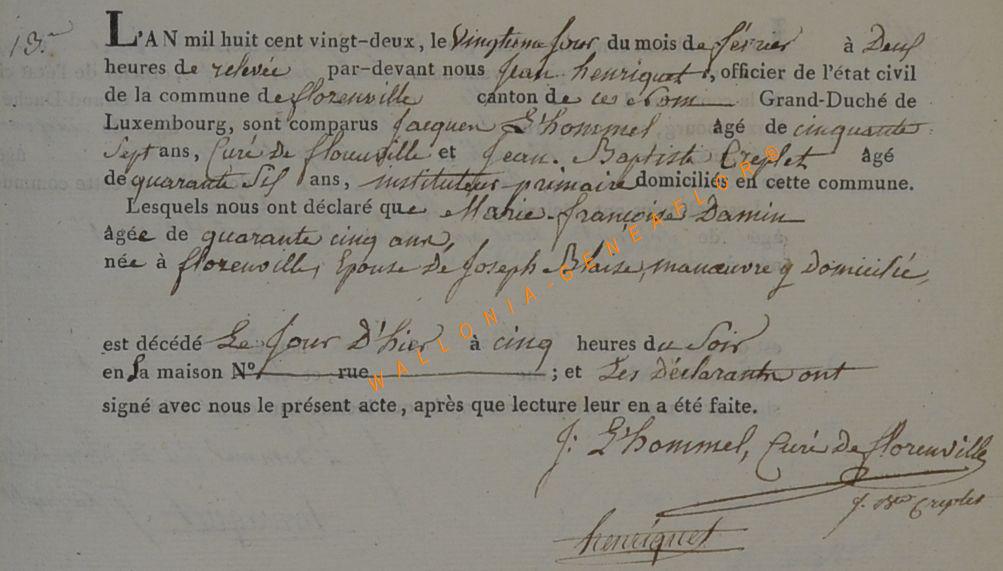 13.
L'AN mil huit cent vingt-deux, le Vingtieme Jour du mois de février à Deux
heures de relevée par-devant nous Jean henriquet, officier de l'état civil
de la commune de florenville canton de ce Nom Grand-Duché de
Luxembourg, sont comparus Jacques L'hommel âgé de cinquante
Sept ans, Curé De florenville et Jean-Baptiste Creplet âgé
de quarante Six ans, instituteur primaire domiciliés en cette commune.
Lesquels nous ont déclaré que Marie-françoise Damin
âgée de quarante cinq ans,
née à florenville, Epouse De Joseph Blaise, manœuvre y Domicilié,
est décédé Le Jour D'hier à cinq heures du Soir
en Sa maison N.º rue ; et Les Déclarants ont
signé avec nous le présent acte, après que lecture leur en a été faite.
J: L'hommel, Curé De florenville
J. Bte Creplet
henriquet
WALLONIA-GENEAFLOR®